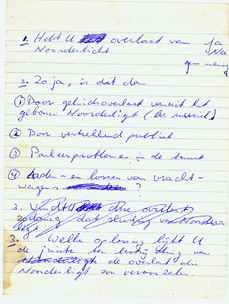 1. Hebt U overlast van Ja
Noorderlicht Nee
geen mening
2. Zo ja, is dat dan
① Door geluidsoverlast vanuit het
gebouw Noorderligt (bv. muziek)
② Door vertrekkend publiek
③ Parkeerproblemen in de buurt
④ Laden- en lossen van vracht-
wagens ?
3. Vindt U die overlast
zodanig dat sluiting van Noorder-
ligt
3. Welke oplossing lijkt U
de juiste ter bestrijding van
de overlast die
Noorderligt zou veroorzaken.